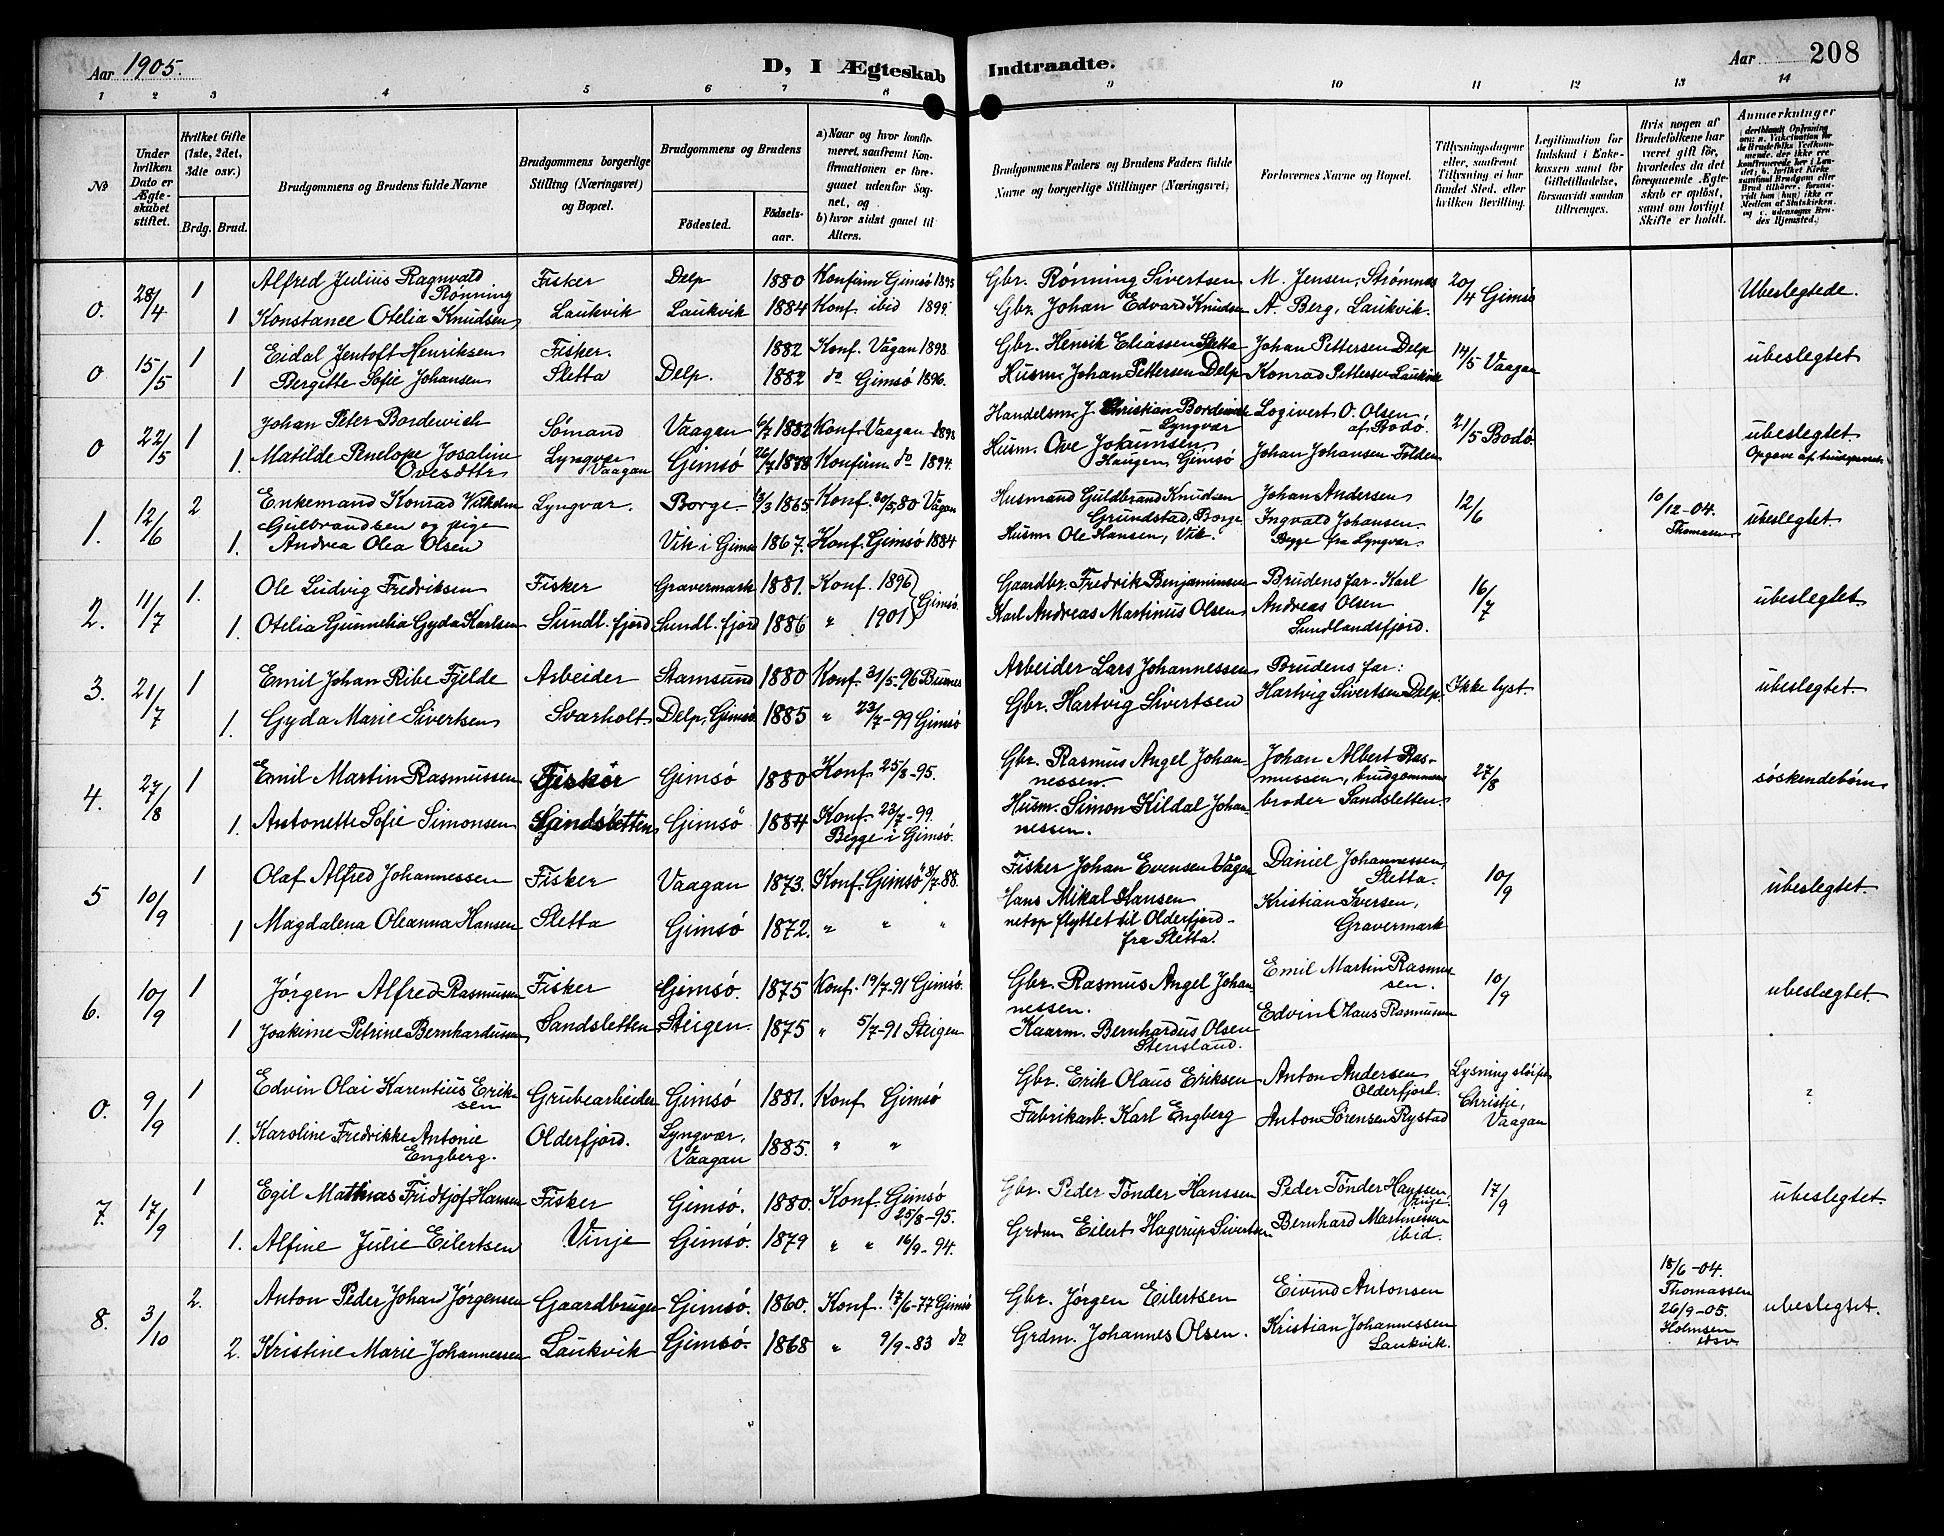 Aar 1905.
D, I Ægteskab Indtraadte.
Aar 208
1 2 3 4 5 6 7 8 9 10 11 12 13 14
№
Under hvilken Dato er Ægteskabet stiftet.
Hvilket Gifte (1ste, 2det, 3die osv.)
Brdg. Brud.
Brudgommens og Brudens fulde Navne
Brudgommens borgerlige Stilling (Næringsvei) og Bopæl.
Brudgommens og Brudens
Födested. Födsels-aar.
a) Naar og hvor konfirmeret, saafremt Konfirmationen er foregaaet udenfor Sognet, og
b) hvor sidst gaaet til Alters.
Brudgommens Faders og Brudens Faders fulde Navne og borgerlige Stillinger (Næringsvei)
Forlovernes Navne og Bopæl.
Tillysningsdagene eller, saafremt Tillysning ei har fundet Sted, efter hvilken Bevilling.
Legitimation for Indskud i Enkekassen samt for Giftetilladelse, forsaavidt saadan tiltrænges.
Hvis nogen af Brudefolkene har været gift för, hvorledes da det foregaaende Ægteskab er oplöst, samt om lovligt Skifte er holdt.
Anmærkninger
0. 28/4 1 Alfred Julius Ragnvald Rönning Fisker Delp 1880 Konfirm Gimsö 1895 Gbr. Rönning Sivertsen M. Jensen, Strömnes 20/4 Gimsö Ubeslegtede.
1 Konstance Otelia Knudsen Laukvik Laukvik 1884 Konf. ibid 1899. Gbr. Johan Edvard Knudsen A. Berg, Laukvik.
0 15/5 1 Eidal Jentoft Henriksen Fisker. 1882 Konf. Vågan 1898. Gbr. Henrik Eliassen Sletta Johan Pettersen Delp 14/5 Vaagan ubeslegtet
1 Bergitte Sofie Johansen Sletta Delp. 1882 do Gimsö 1896. Husm. Johan Pettersen Delp Konrad Pettersen Laukvik
0 22/5 1 Johan Peter Bordewich Sömand Vaagan 1882 Konf. Vaagan 1898 Handelsm. J. Christian Bordewich Lyngvær Logivert O. Olsen, af Bodö. 21/5 Bodö. ubeslegtet
1. Matilde Penelope Josaline Ovesdttr Lyngvær Vaagan Gimsö 26/7 1878 Konfirm. do 1894. Husm. Ove Jokumsen Haugen, Gimsö Johan Johansen Folden Opgave af
1. 12/6 2 Enkemand Konrad Vilhelm Gulbrandsen og pige Lyngvær. Borge 13/3 1865 Konf. 30/5,80 Vågan Husmand Guldbrand Knudsen Grundstad, Borge Johan Andersen 12/6 10/12-04. Thomassen ubeslegtet
1. Andrea Olea Olsen Vik i Gimsö 1867. Konf. Gimsö 1884 Husm Ole Hansen, Vik. Ingvald Johansen. Begge fra Lyngvær.
2. 11/7 1. Ole Ludvig Fredriksen Fisker Gravermark 1881. Konf. 1896 Gimsö. Gaardbr. Fredrik Benjaminsen Brudens far. Karl 16/7 ubeslegtet
1. Otelia Gunnelia Gyda Karlsen Sundl. fjord Sundl. fjord 1886 " 1901 Karl Andreas Martinus Olsen Andreas Olsen Sundlandsfjord.
3. 21/7 1 Emil Johan Ribe Fjelde Arbeider Stamsund 1880 Konf. 31/5-96 Buksnes Arbeider Lars Johannessen Brudens far: Ikke lyst ubeslegtet
1. Gyda Marie Sivertsen Svarholt. Delp, Gimsö 1885 " 23/7-99 Gimsö Gbr. Hartvig Sivertsen Hartvig Sivertsen Delp.
4. 27/8 1 Emil Martin Rasmussen Fisker Gimsö 1880 Konf. 25/8-95. Gbr. Rasmus Angel Johannessen. Johan Albert Rasmussen, brudgommens 27/8 søskendebörn
1. Antonette Sofie Simonsen Sandsletten Gimsö 1884 Konf. 23/7-99. Begge i Gimsö. Husm. Simon Kildal Johannessen. broder Sandsletten.
5 10/9 1 Olaf Alfred Johannessen Fisker Vaagan 1873. Konf. Gimsö 3/7-88. Fisker Johan Evensen Vågan Daniel Johannessen, Sletta. 10/9 ubeslegtet.
1 Magdalena Oleanna Hansen Sletta Gimsö 1872. " " " Hans Mikal Hansen netop flyttet til Olderfjord fra Sletta. Kristian Iversen, Gravermark
6. 10/9 1 Jörgen Alfred Rasmussen Fisker Gimsö. 1875 Konf. 19/7-91 Gimsö. Gbr. Rasmus Angel Johannessen. Emil Martin Rasmussen. 10/9 ubeslægtet.
1 Joakime Petrine Bernhardussen Sandsletten Steigen. 1875 " 5/7-91 Steigen Kaarm. Bernhardus Olsen Stensland. Edvin Olaus Rasmussen
0. 9/9 1 Edvin Olai Karentius Eriksen Grubearbeider Gimsö 1881. Konf Gimsö Gbr. Erik Olaus Eriksen Anton Andersen Olderfjord. Lysning Christie, Vaagan ?
1. Karoline Fredrikke Antonie Engberg. Olderfjord. Lyngvær, Vaagan 1885. " " Fabrikarb. Karl Engberg Anton Sörensen Rystad
7. 17/9 1 Egil Mathias Fridtjof Hansen Fisker Gimsö. 1880. Konf. Gimsö 25/8-95. Gbr. Peder Tönder Hanssen Peder Tönder Hanssen, Vinje. 17/9 ubeslegtet
1. Alfine Julie Eilertsen Vinje Gimsö. 1879 " " 16/9-94. Grdm Eilert Hagerup Sivertsen Bernhard Martinessen ibid.
8. 3/10 2. Anton Peder Johan Jörgensen Gaardbruger Gimsö. 1860. Konf. 17/6-77 Gimsö Gbr. Jörgen Eilertsen Eivind Antonsen 18/6-04. Thomassen ubeslegtet.
2. Kristine Marie Johannessen Laukvik Gimsö. 1868 " 9/9-83 do Grdm. Johannes Olsen. Kristian Johannessen Laukvik. 26/9-05. Holmsen